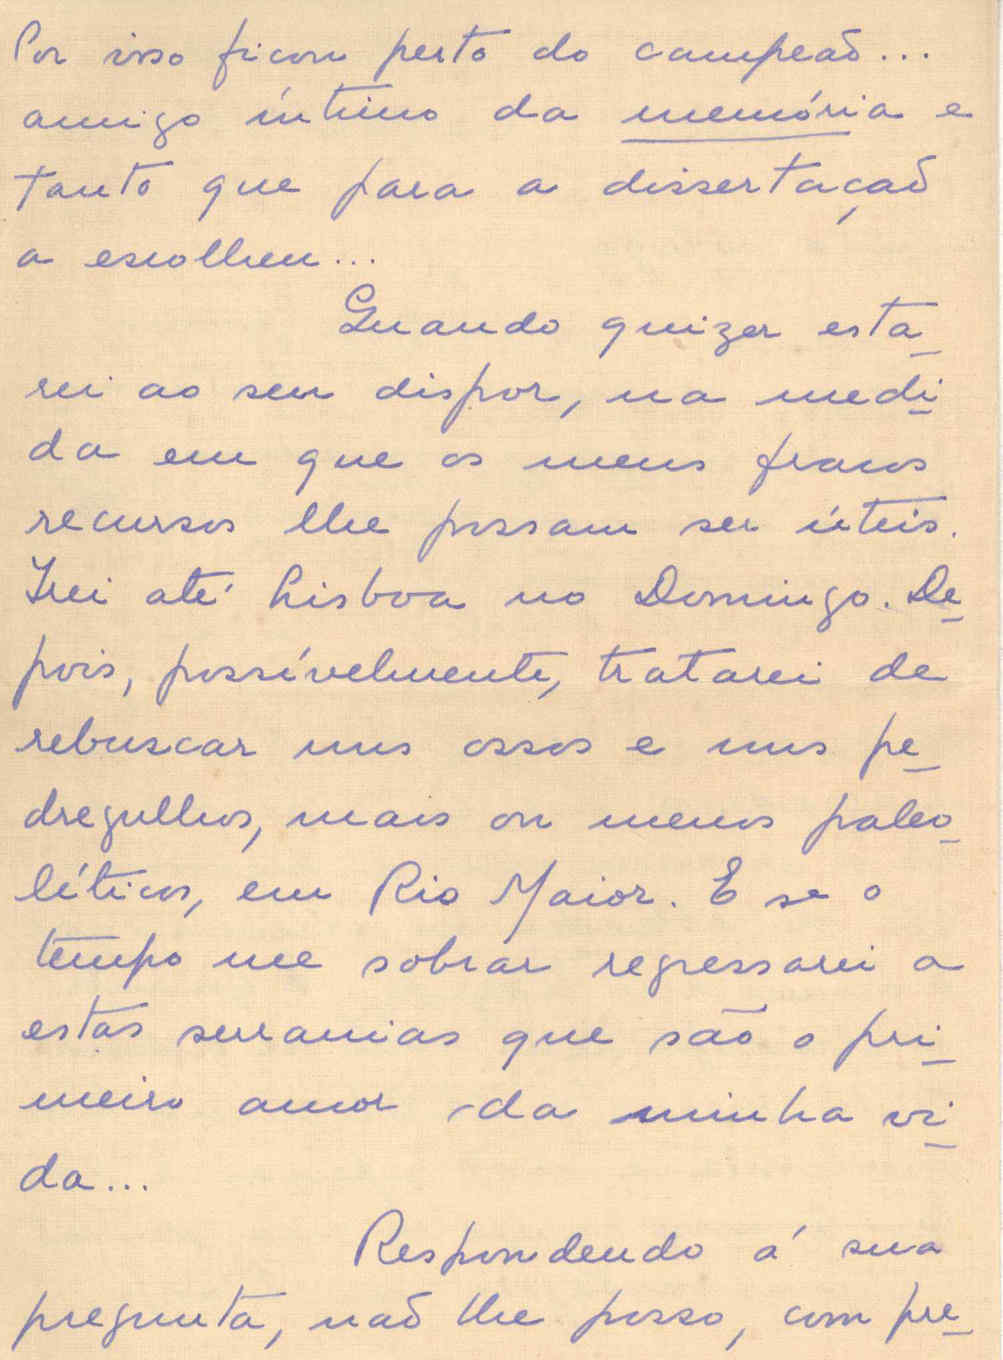 Por isso ficou perto do campeão...
amigo íntimo da memória e
tanto que para a dissertação
a escolheu...
Quando quizer esta-
rei ao seu dispor, na medi-
da em que os meus fracos
recursos lhe possam ser úteis.
Irei até Lisboa no Domingo. De-
pois, possívelmente, tratarei de
rebuscar uns ossos e uns pe-
dregulhos, mais ou menos paleo-
líticos, em Rio Maior. E se o
tempo me sobrar regressarei a
estas serranias que são o pri-
meiro amor da minha vi-
da...
Respondendo á sua
pregunta, não lhe posso, com pre-